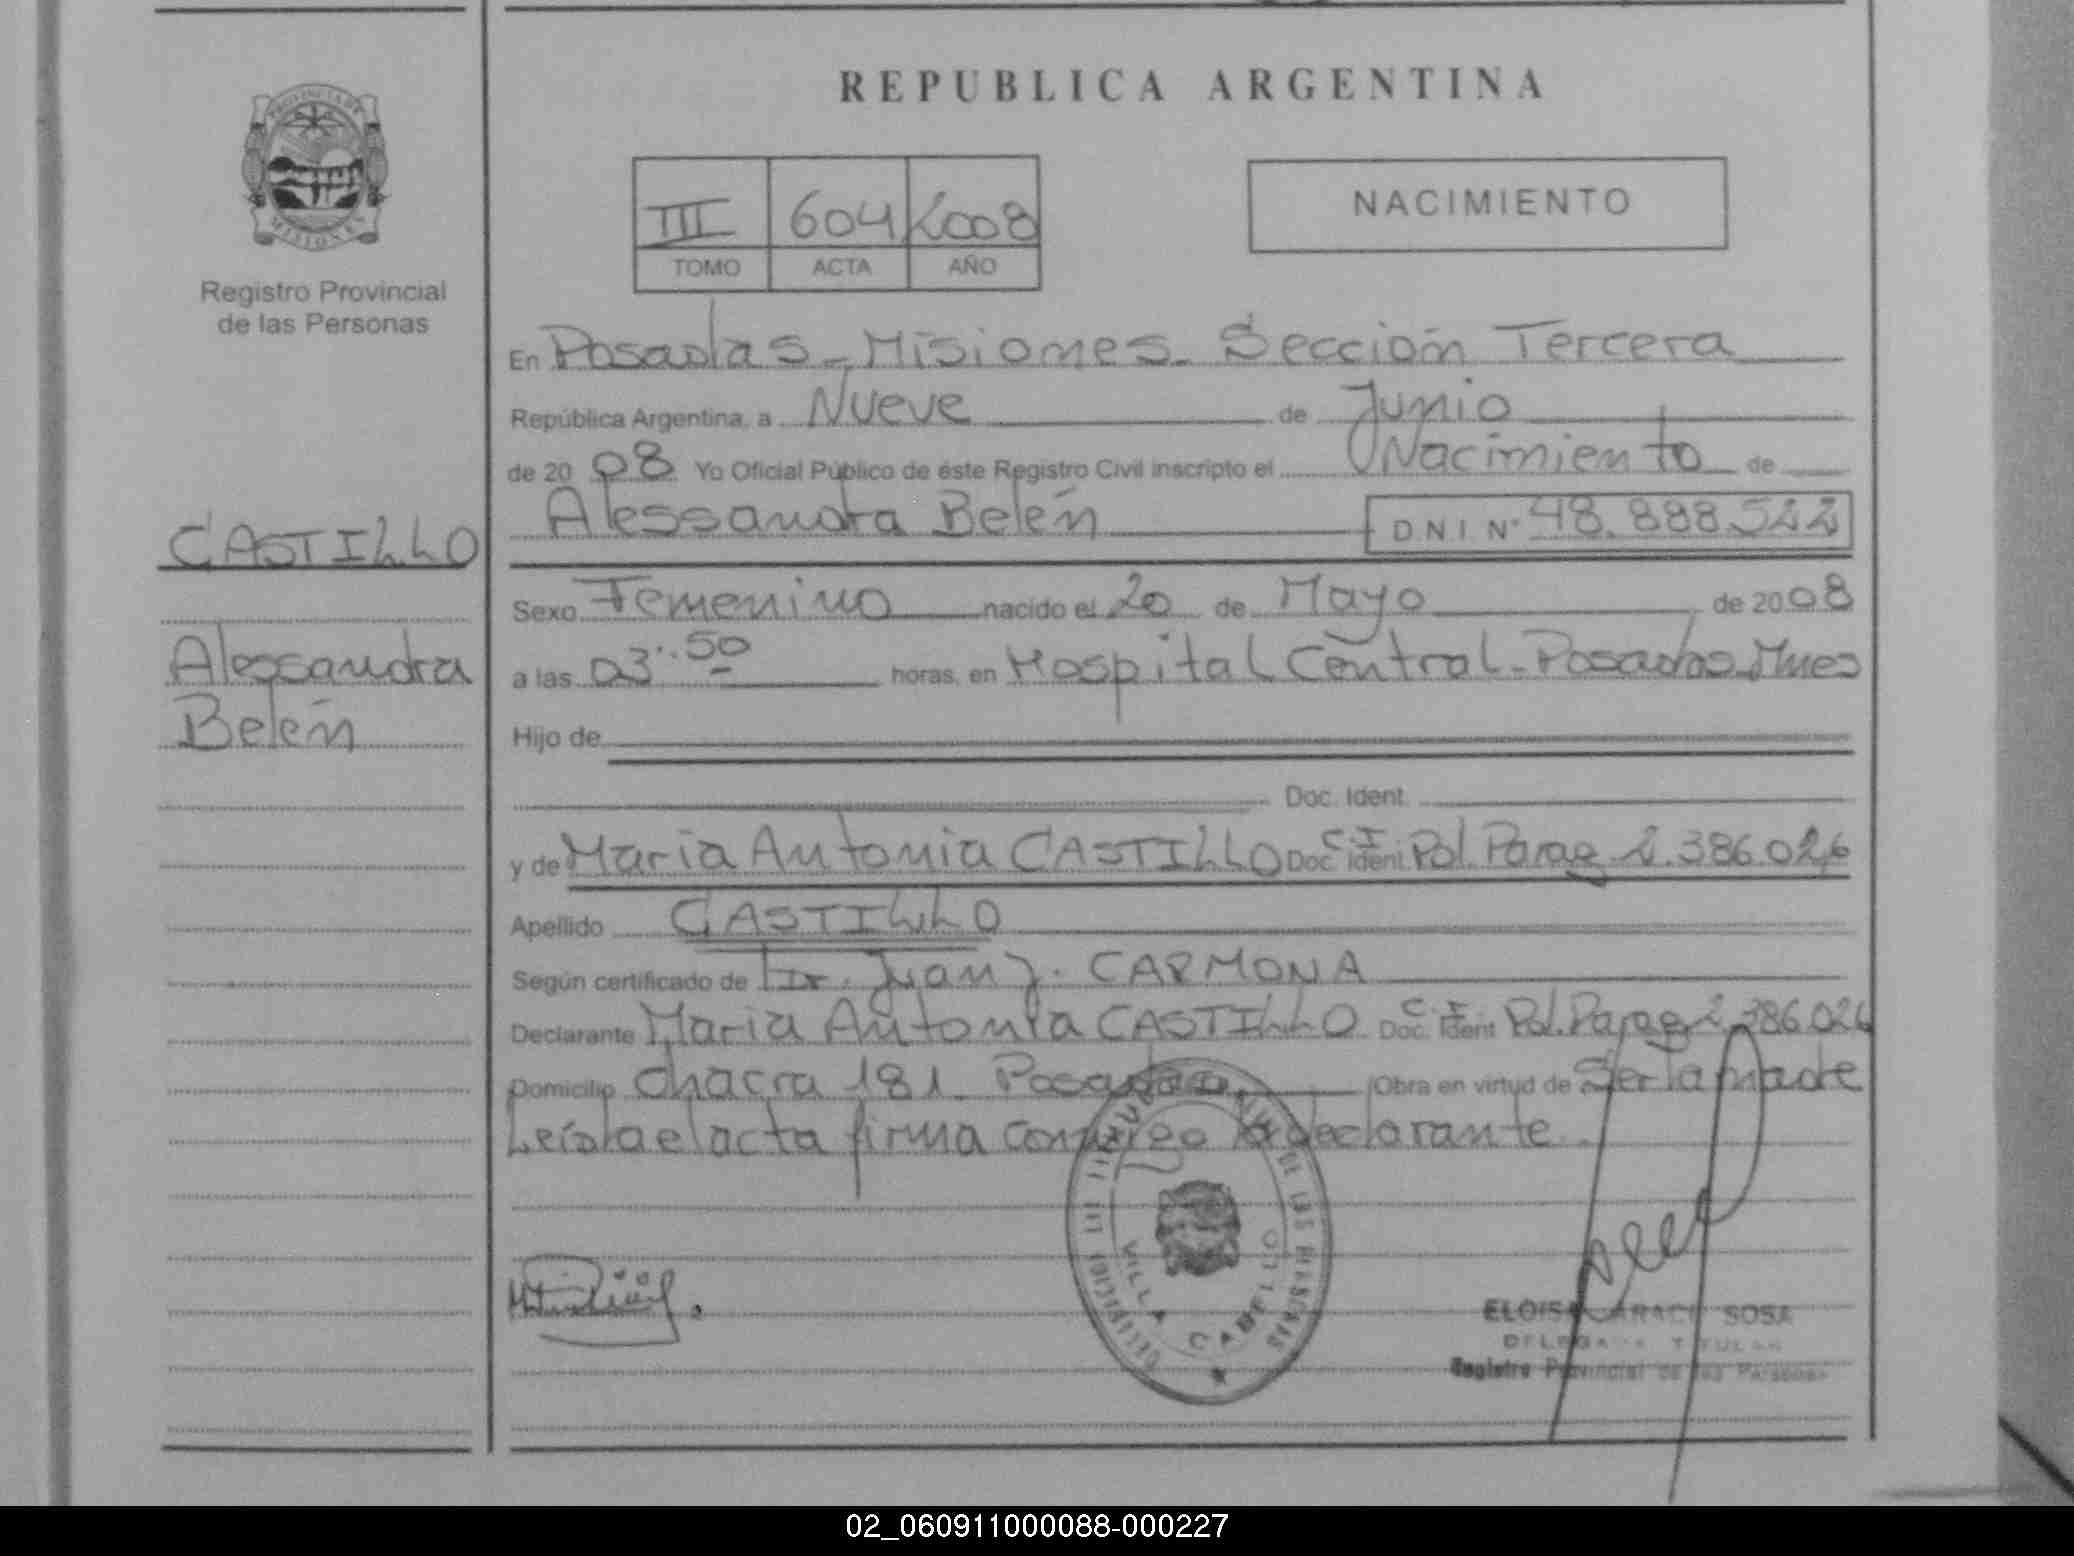 REPUBLICA ARGENTINA
PROVINCIA DE
MISIONES
Registro Provincial
de las Personas
III 604 2008
TOMO ACTA AÑO
NACIMIENTO
En Posadas - Misiones - Sección Tercera
República Argentina, a Nueve de Junio
de 20 08 Yo Oficial Público de éste Registro Civil inscripto el Nacimiento de
Alessandra Belén D N I N° 48.888.522
CASTILLO
Alessandra
Belén
Sexo Femenino nacido el 20 de Mayo de 20 08
a las 03:50 horas, en Hospital Central - Posadas Mnes
Hijo de
Doc. Ident.
y de Maria Antonia CASTILLO Doc. Ident. C.I. Pol. Parag 2.386.026
Apellido CASTILLO
Según certificado de Dr. Juan J. CARMONA
Declarante Maria Antonia CASTILLO Doc. Ident C.I. Pol. Parag 2.386.026
Domicilio chacra 181 Posadas Obra en virtud de Ser la madre
Leída el acta firma conmigo la declarante
DE LAS PERSONAS
VILLA CABELLO
ELOISA ARACI SOSA
DELEGADA TITULAR
Registro Provincial de las Personas
02_060911000088-000227